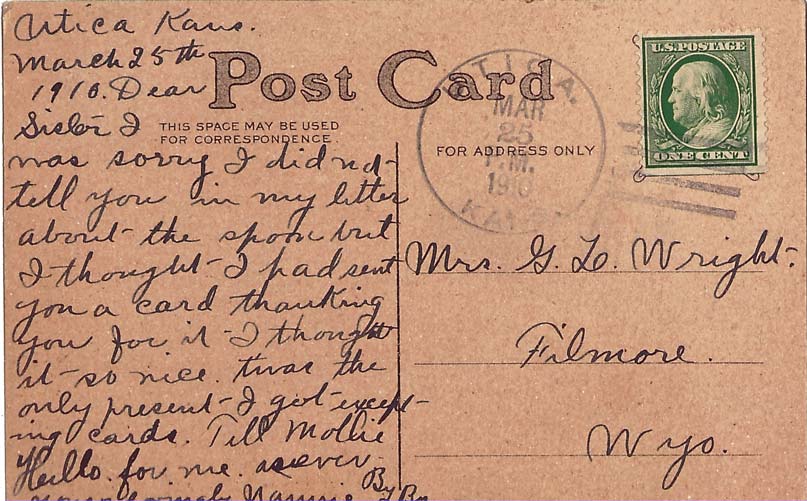 Utica Kans.
March 25th
1910. Dear
Sister I
was sorry I did not
tell you in my letter
about the spoon but
I thought I had sent
you a card thanking
you for it I thought
it so nice. twas the
only present I got except-
ing cards. Tell Mollie
Hello for me. as ever
Nannie By
Post Card
THIS SPACE MAY BE USED
FOR CORRESPONDENCE.
FOR ADDRESS ONLY
UTICA,
MAR
25
P.M.
1910
KANS.
U.S. POSTAGE
ONE CENT
Mrs. G. L. Wright.
Filmore.
Wyo.